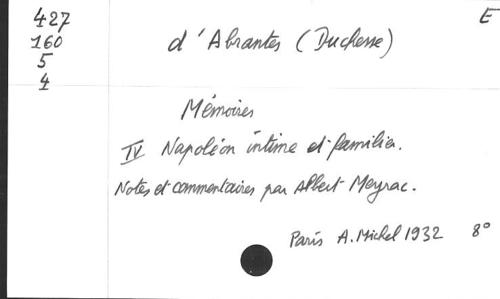 427
160
5
4
E
d'Abrantes (Duchesse)
Mémoires
IV Napoléon intime et familier.
Notes et commentaires par Albert Meyrac.
Paris A. Michel 1932 8°